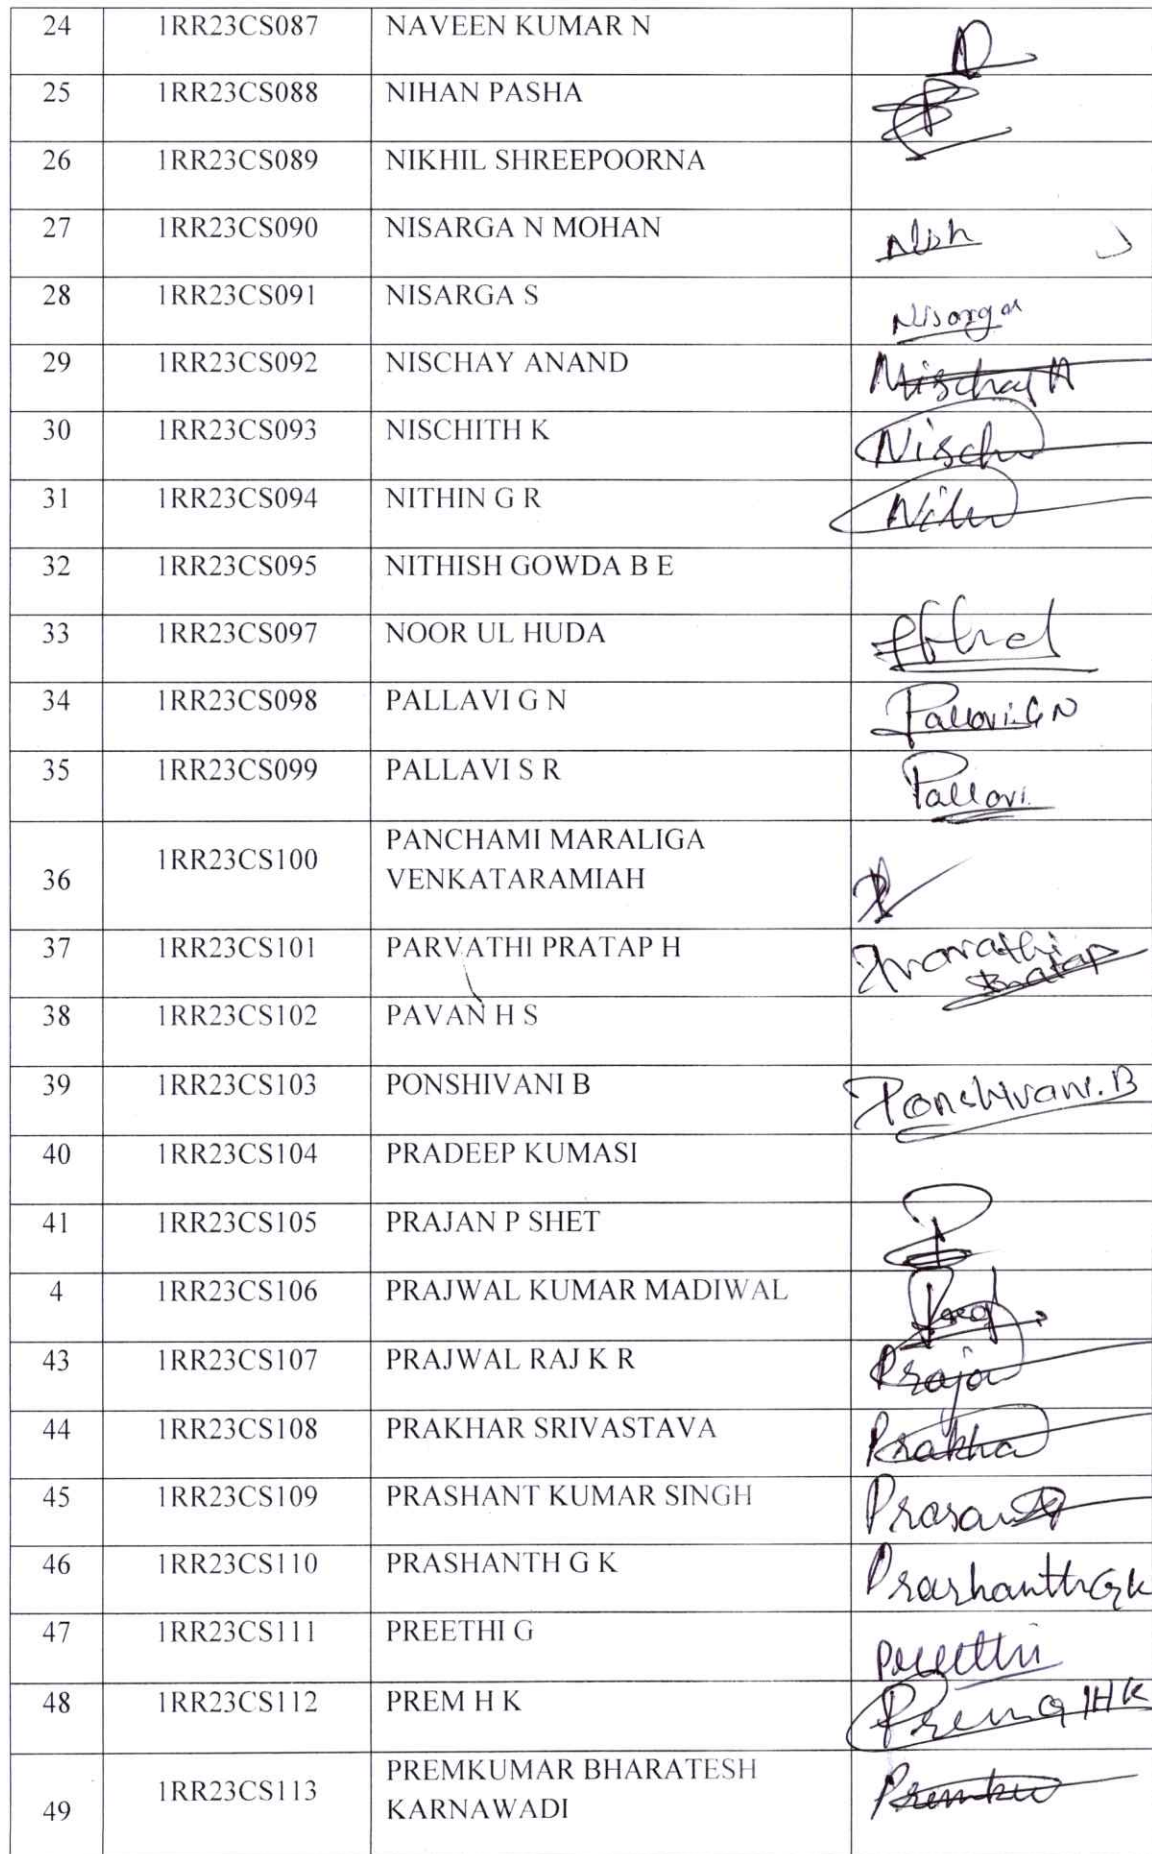 24 1RR23CS087 NAVEEN KUMAR N
25 1RR23CS088 NIHAN PASHA
26 1RR23CS089 NIKHIL SHREEPOORNA
27 1RR23CS090 NISARGA N MOHAN Nish
28 1RR23CS091 NISARGA S Nisarga
29 1RR23CS092 NISCHAY ANAND Nischay A
30 1RR23CS093 NISCHITH K
31 1RR23CS094 NITHIN G R
32 1RR23CS095 NITHISH GOWDA B E
33 1RR23CS097 NOOR UL HUDA
34 1RR23CS098 PALLAVI G N Pallavi.G N
35 1RR23CS099 PALLAVI S R Pallavi
PANCHAMI MARALIGA
36 1RR23CS100 VENKATARAMIAH
37 1RR23CS101 PARVATHI PRATAP H
Pratap
38 1RR23CS102 PAVAN H S
39 1RR23CS103 PONSHIVANI B Ponshivani.B
40 1RR23CS104 PRADEEP KUMASI
41 1RR23CS105 PRAJAN P SHET
4 1RR23CS106 PRAJWAL KUMAR MADIWAL
43 1RR23CS107 PRAJWAL RAJ K R
44 1RR23CS108 PRAKHAR SRIVASTAVA Prakha
45 1RR23CS109 PRASHANT KUMAR SINGH
46 1RR23CS110 PRASHANTH G K Prashanth G k
47 1RR23CS111 PREETHI G Preethi
48 1RR23CS112 PREM H K
PREMKUMAR BHARATESH
49 1RR23CS113 KARNAWADI